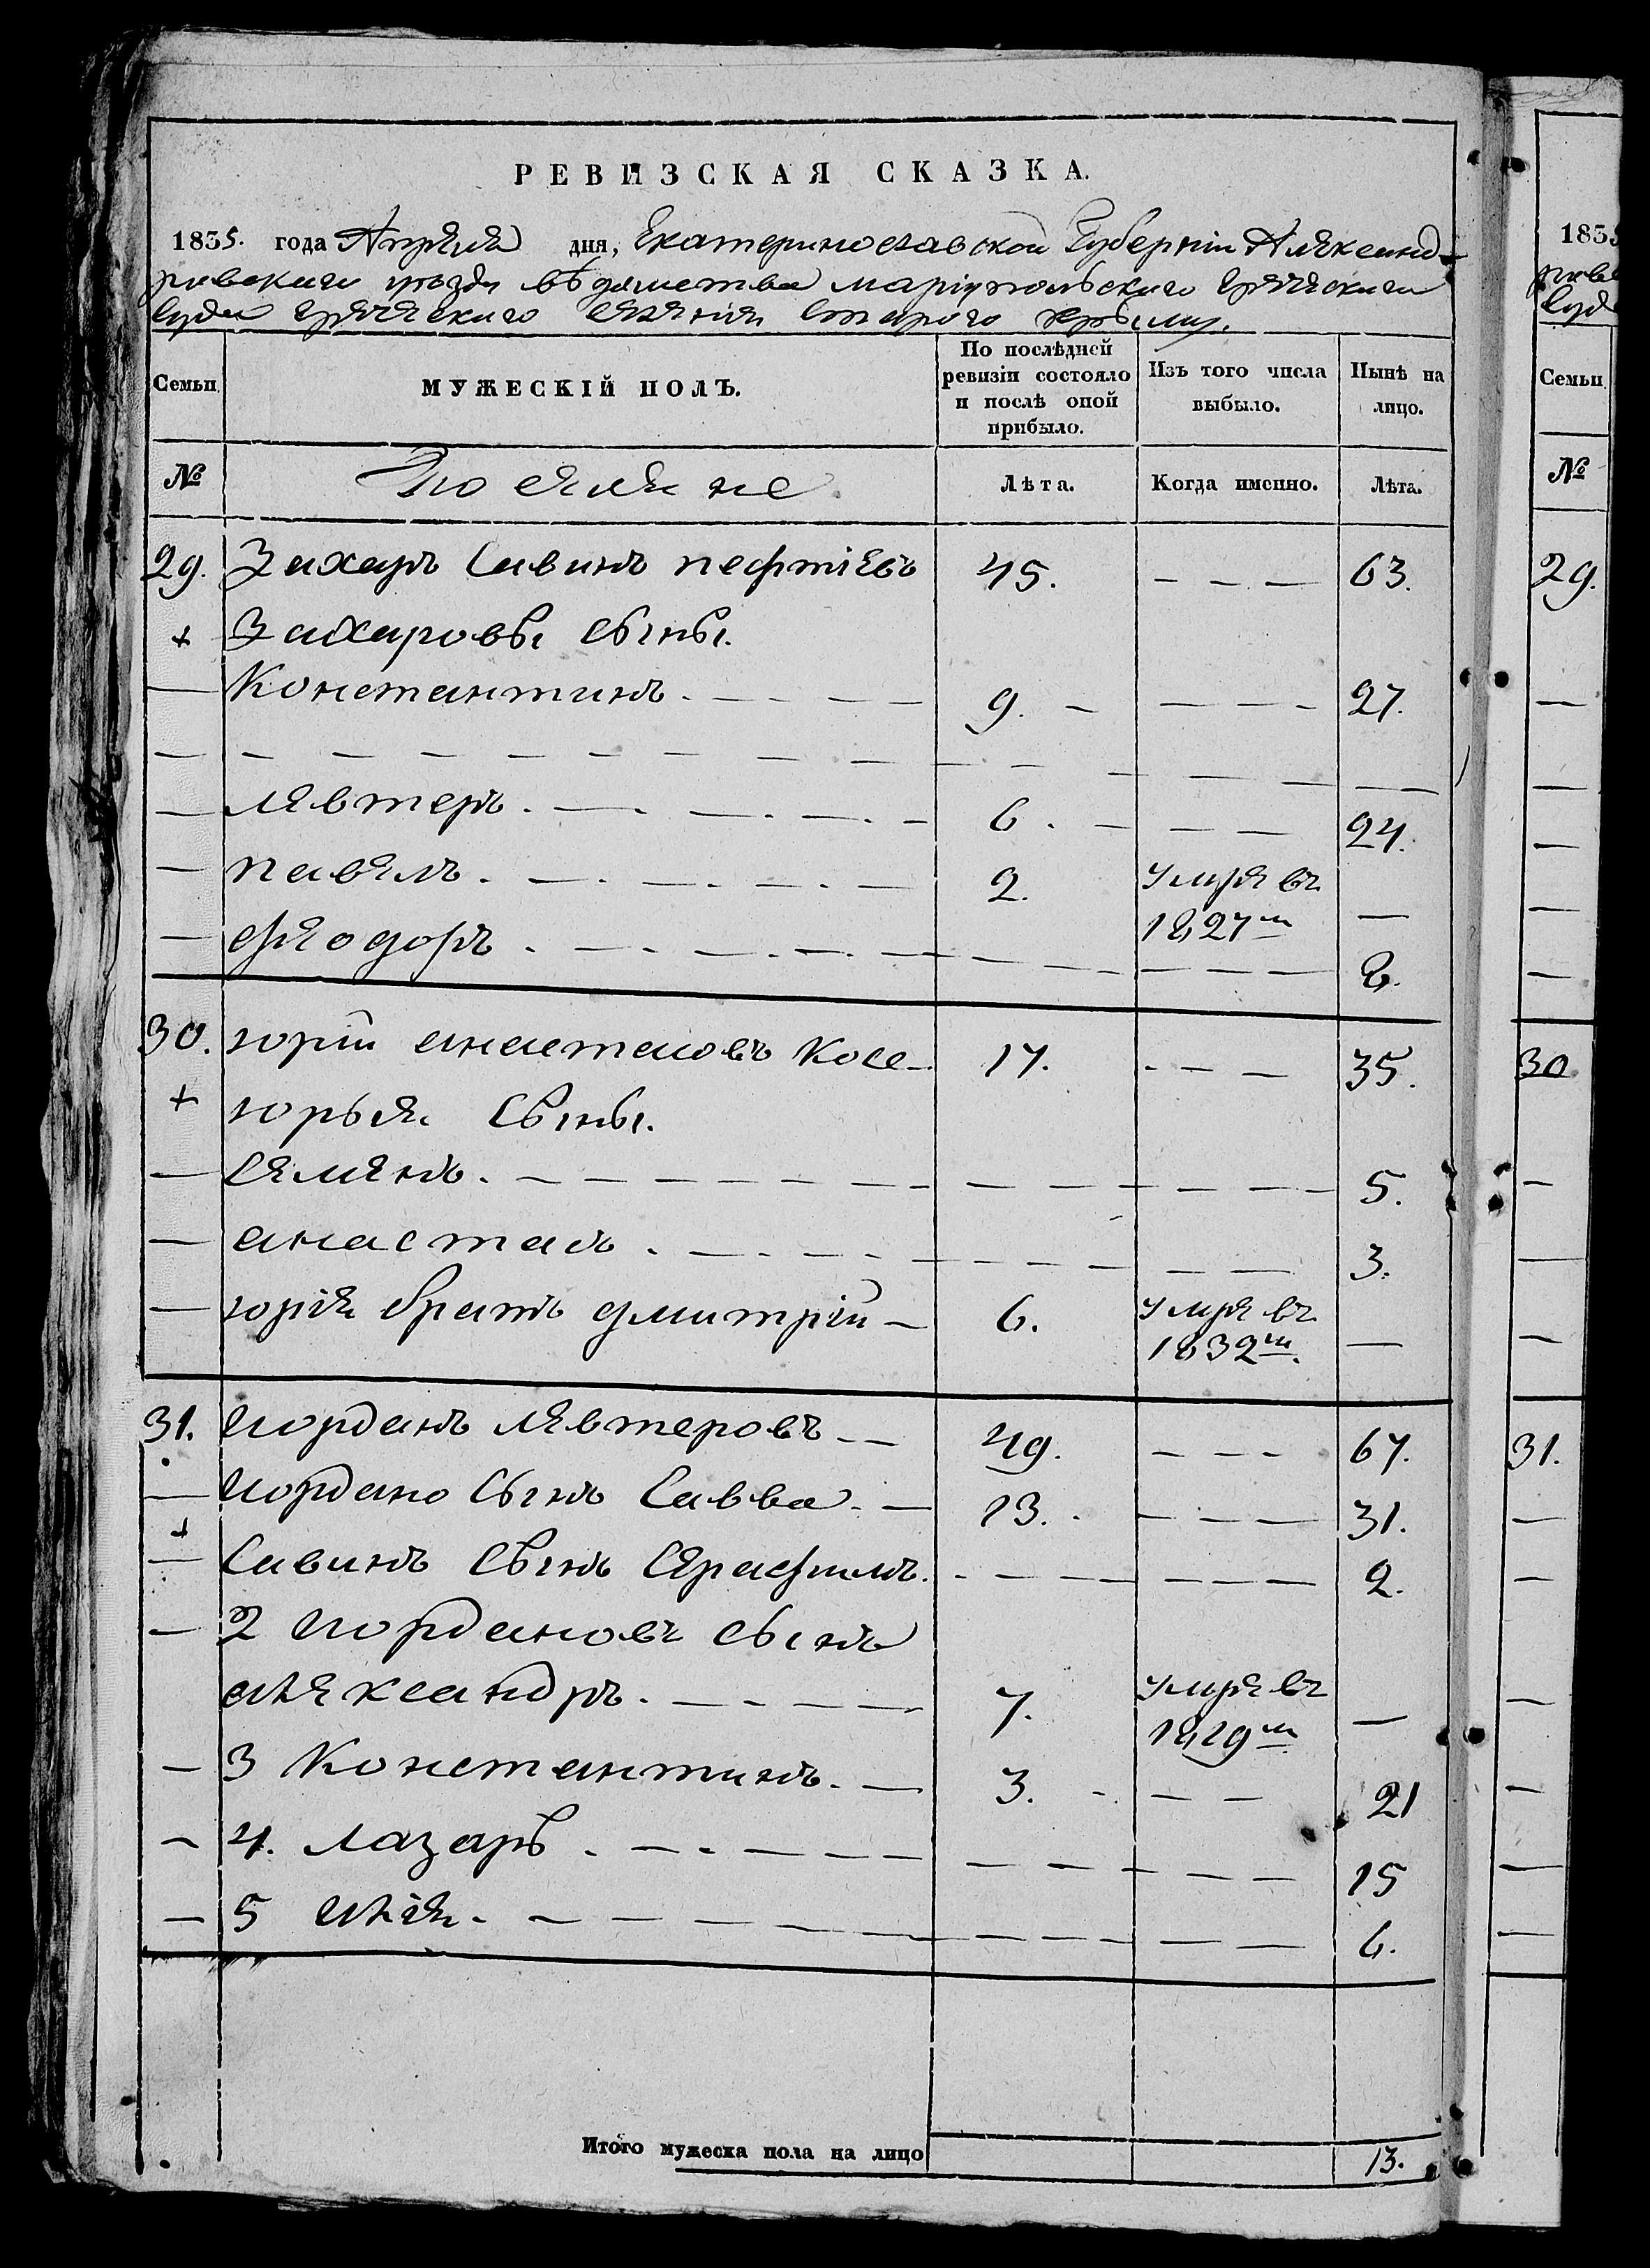 РЕВИЗСКАЯ СКАЗКА.
1835. года Апреля дня, Екатеринославской Губерніи Александ-
ровскаго уезда вѣдомства маріупольскаго греческаго
Суда греческаго селенія Старого крыму.
Семьи. МУЖЕСКІЙ ПОЛЪ. По послѣдней ревизіи состояло и послѣ оной прибыло. Изъ того числа выбыло. Нынѣ на лицо.
№ Поселяне Лѣта. Когда именно. Лѣта.
29. Захаръ Савинъ пефтіевъ 45. — — — 63.
+ Захаровы сыны.
— Константинъ. — — — 9. — — — — 27.
— левтеръ. — — — 6. — — — 24.
— павелъ. — — — 2. умре въ 1827м —
— феодоръ. — — — — — — 8.
30. юрій анастасовъ Косе — 17. — — — 35.
+ юрья Сыны.
— Семенъ. — — — — — — 5.
— анастасъ. — — — — — — 3.
— юрія братъ дмитрій — 6. умре въ 1832м. —
31. иорданъ левтеровъ — — 49. — — — 67.
— иордано Сынъ Савва. — 13. — — — 31.
+ — Савинъ Сынъ Серафимъ. — — — — — — 2.
— 2 иордановъ сынъ
александръ. — — — 7. умре въ 1819м —
— 3 Константинъ. — 3. — — — 21
— 4. лазарь. — — — — — — 15
— 5 илія. — — — — — — 6.
Итого мужеска пола на лицо 13.
1835
Суд
Семьи
№
29.
30
31.